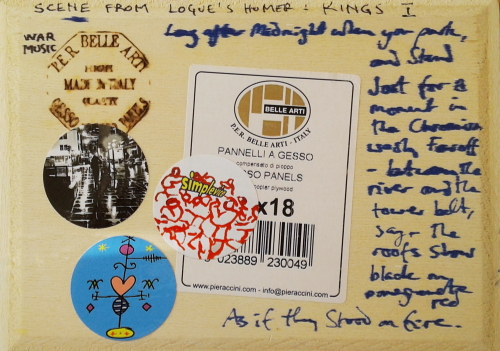 SCENE FROM LOGUE'S HOMER : KINGS I
WAR
MUSIC
Long after midnight when you park,
and Stand
Just for a
moment in
the Chromium
wash, far off
- between the
river and the
tower belt,
say - The
roofs show
black on
pomegranate
red
As if they stood on fire.
P.E.R. BELLE ARTI
MADE IN ITALY
QUALITY
GESSO PANELS
BELLE ARTI
P.E.R. BELLE ARTI - ITALY
PANNELLI A GESSO
compensato di pioppo
SSO PANELS
poplar plywood
x18
023889 230049
www.pieraccini.com - info@pieraccini.com